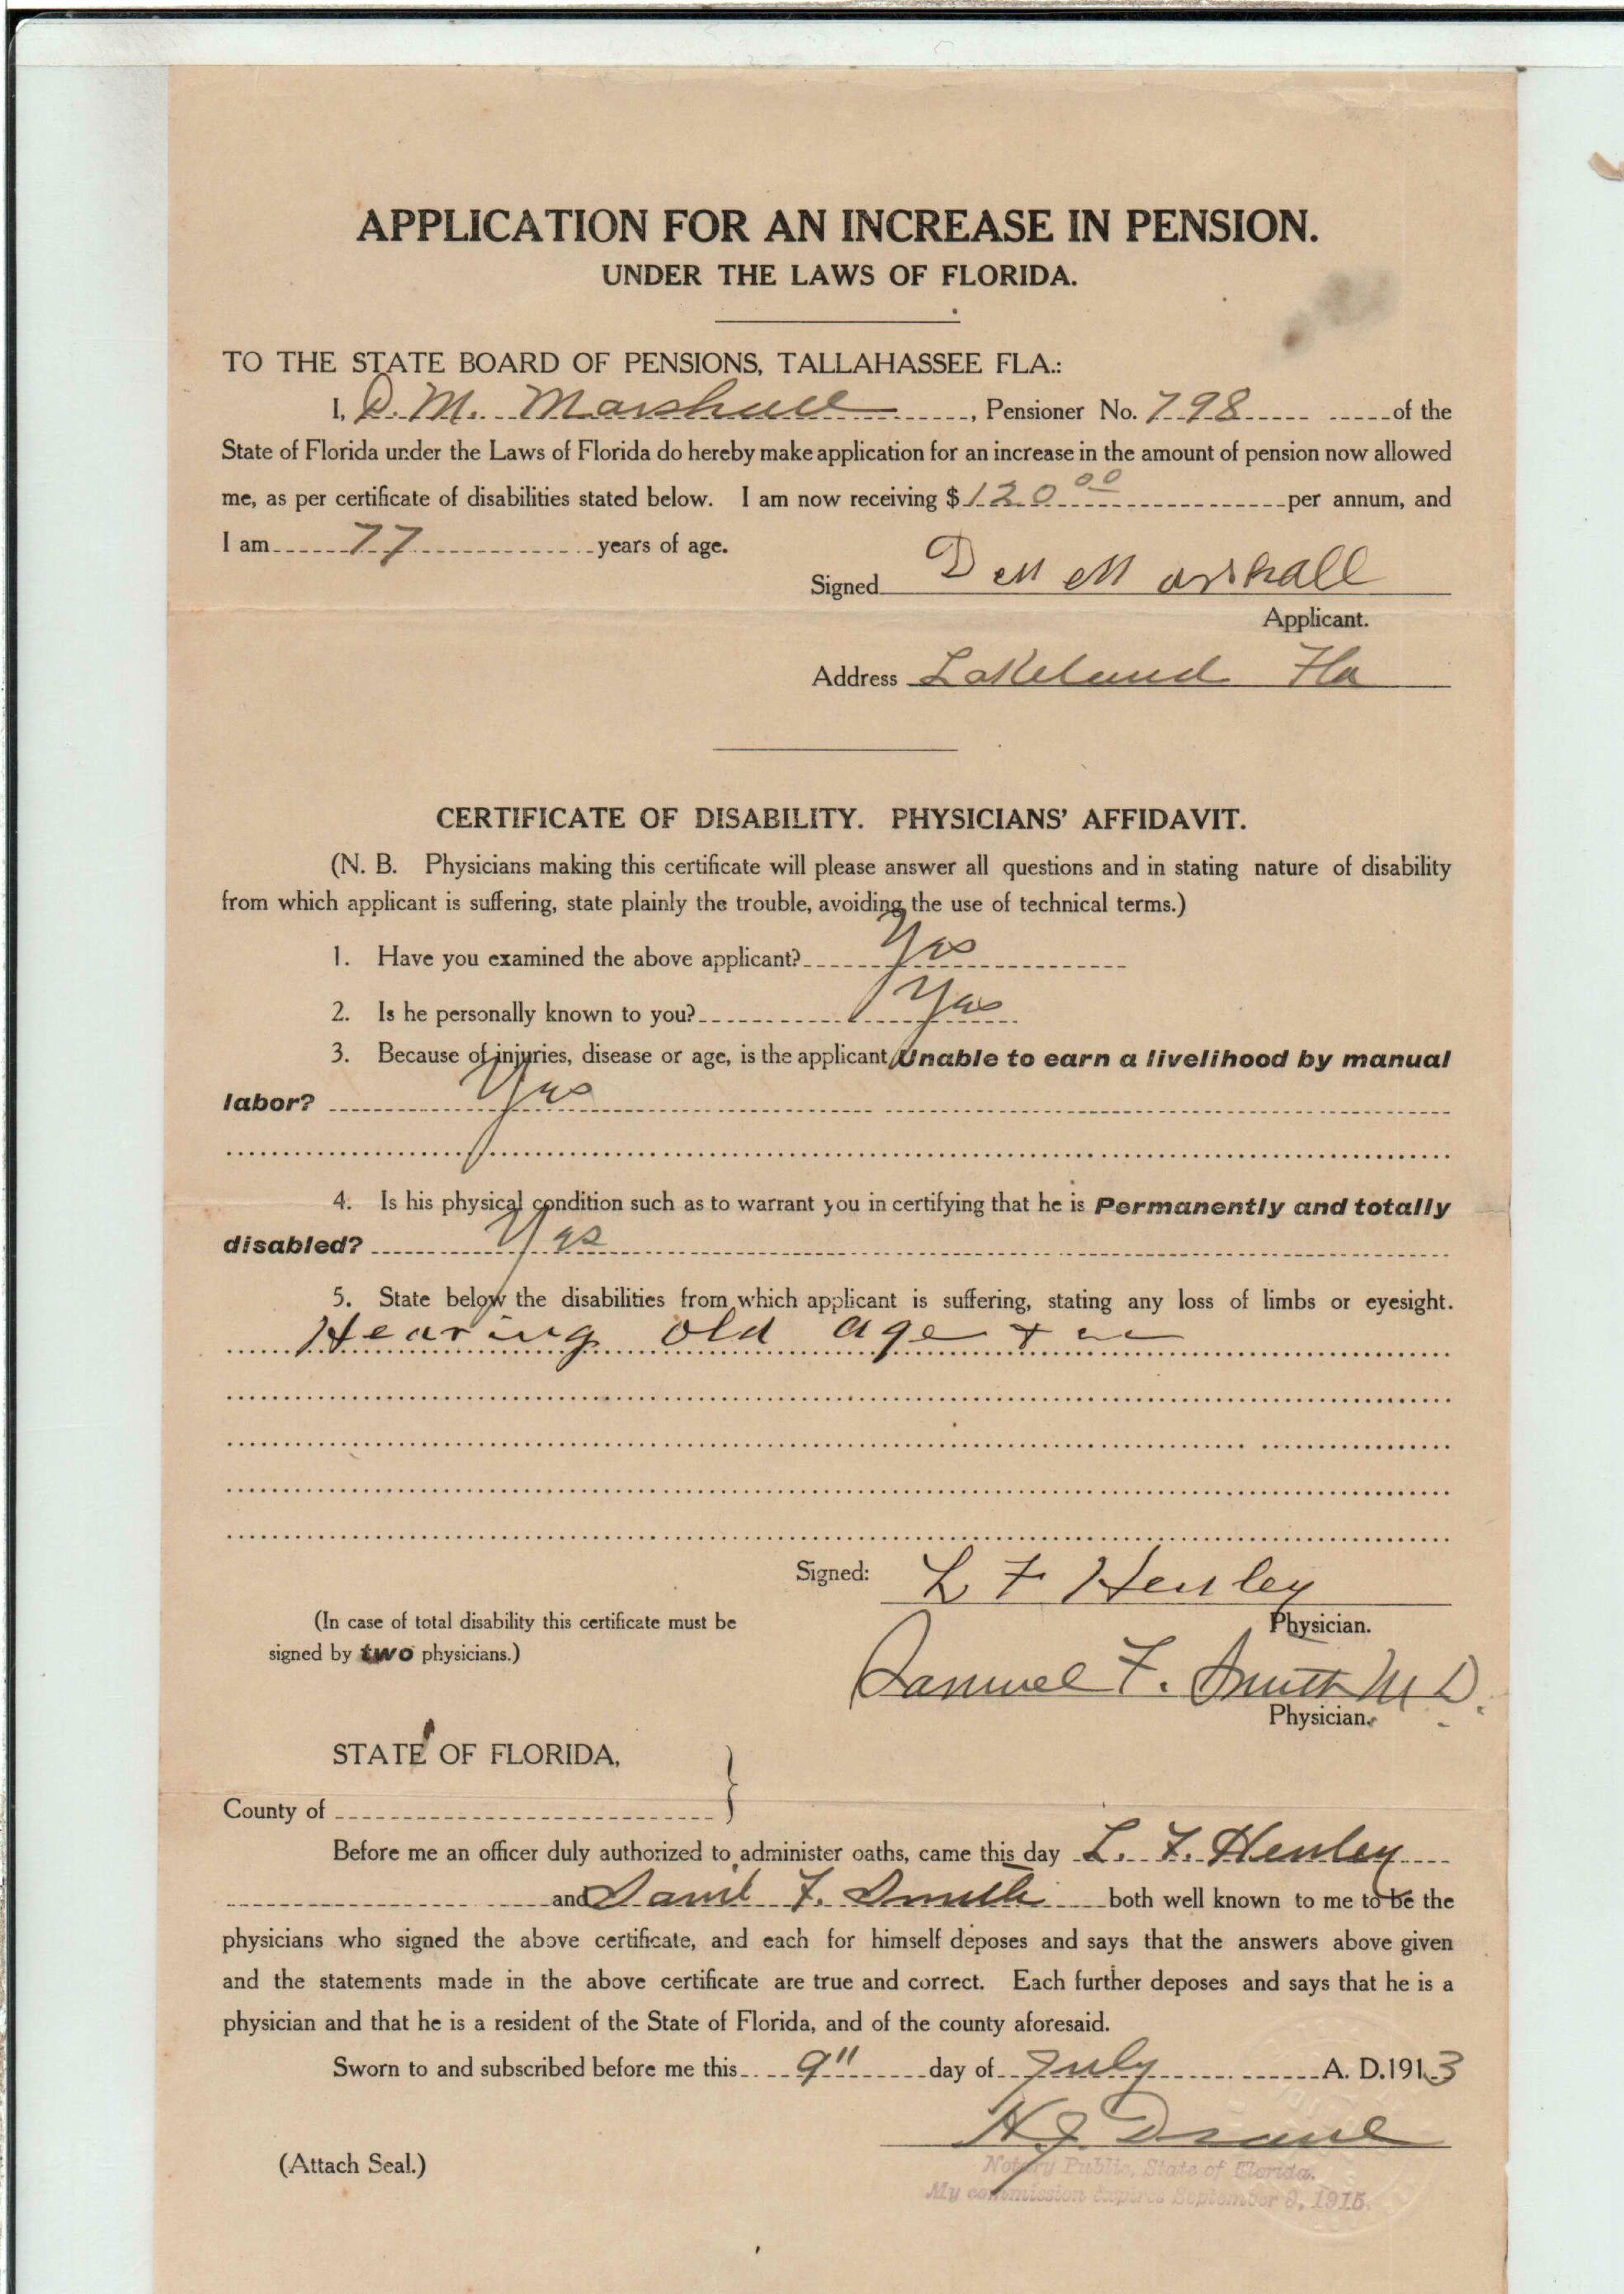 APPLICATION FOR AN INCREASE IN PENSION.
UNDER THE LAWS OF FLORIDA.
TO THE STATE BOARD OF PENSIONS, TALLAHASSEE FLA.:
I, D. M. Marshall, Pensioner No. 798 of the
State of Florida under the Laws of Florida do hereby make application for an increase in the amount of pension now allowed
me, as per certificate of disabilities stated below. I am now receiving $120.00 per annum, and
I am 77 years of age.
Signed D M Marshall
Applicant.
Address Lakeland Fla
CERTIFICATE OF DISABILITY. PHYSICIANS' AFFIDAVIT.
(N. B. Physicians making this certificate will please answer all questions and in stating nature of disability
from which applicant is suffering, state plainly the trouble, avoiding the use of technical terms.)
1. Have you examined the above applicant? Yes
2. Is he personally known to you? Yes
3. Because of injuries, disease or age, is the applicant Unable to earn a livelihood by manual
labor? Yes
4. Is his physical condition such as to warrant you in certifying that he is Permanently and totally
disabled? Yes
5. State below the disabilities from which applicant is suffering, stating any loss of limbs or eyesight.
Hearing old age
Signed: L F Henley
Physician.
(In case of total disability this certificate must be
signed by two physicians.)
Samuel F. Smith M D.
Physician.
STATE OF FLORIDA,
County of
Before me an officer duly authorized to administer oaths, came this day L. F. Henley
and Saml F. Smith both well known to me to be the
physicians who signed the above certificate, and each for himself deposes and says that the answers above given
and the statements made in the above certificate are true and correct. Each further deposes and says that he is a
physician and that he is a resident of the State of Florida, and of the county aforesaid.
Sworn to and subscribed before me this 9" day of July A. D. 1913
H J Drane
(Attach Seal.)
Notary Public, State of Florida.
My commission expires September 9, 1915.